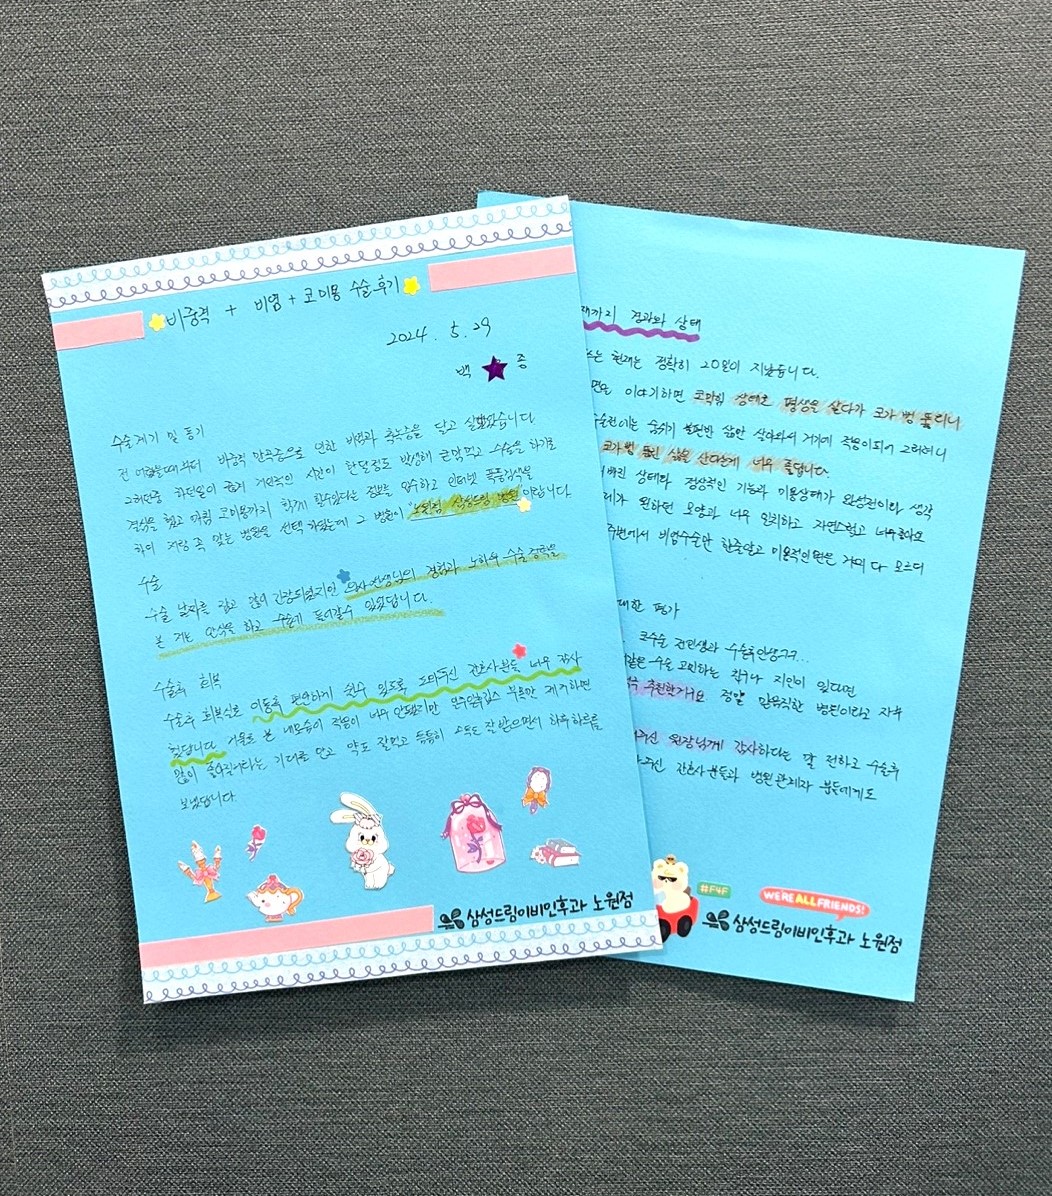 비중격 + 비염 + 코미용 수술후기
2024. 5. 29
백 ★ 증
수술계기 및 동기
전 어렸을때부터 비중격 만곡증으로 인한 비염과 축농증을 달고 살았었습니다
그러던중 하던일이 쉽게 개인적인 시간이 한달정도 발생해 큰맘먹고 수술을 하기로
결심을 했고 마침 코미용까지 함께 할수있다는 정보를 입수하고 인터넷 폭풍검색을
하여 저랑 꼭 맞는 병원을 선택 하였는데 그 병원이 "노원점 삼성드림 병원"이랍니다.
수술
수술 날짜를 잡고 많이 긴장되었지만 의사선생님의 경험과 노하우 수술경력을
본 저는 안심을 하고 수술에 들어갈수 있었답니다.
수술후 회복
수술후 회복실로 이동후 편안하게 쉴수 있도록 도와주신 간호사분들 너무 감사
했답니다. 거울로 본 내모습이 적응이 너무 안됐지만 부목만 제거하면
많이 좋아지리라는 기대를 안고 약도 잘먹고 틈틈히 소독도 잘 받으면서 하루하루를
보냈답니다.
삼성드림이비인후과 노원점
재까지 경과와 상태
쓰는 현재는 정확히 20일이 지났습니다.
면을 이야기하면 코막힘 상태로 평생을 살다가 코가 뻥 뚫리니
수술전에는 숨쉬기 불편한 삶만 살아와서 거기에 적응이되어 그러려니
코가 뻥 뚫린 삶을 산다는게 너무 좋답니다.
빠진 상태라 정상적인 기능과 미용상태가 완성전이라 생각
제가 원하던 모양과 너무 일치하고 자연스럽고 너무좋아요
주변에서 비염수술만 한줄알고 미용적인면은 거의 다 모르더
대한 평가
코수술 전인생과 수술후인생ㅋㅋ...
같은 수술 고민하는 친구나 지인이 있다면
추천한거요 정말 만족직한 병원이라고 자부
주신 원장님께 감사하다는 말 전하고 수술후
주신 간호사분들과 병원관계자 분들에게도
#F4F
WE'RE ALL FRIENDS!
삼성드림이비인후과 노원점